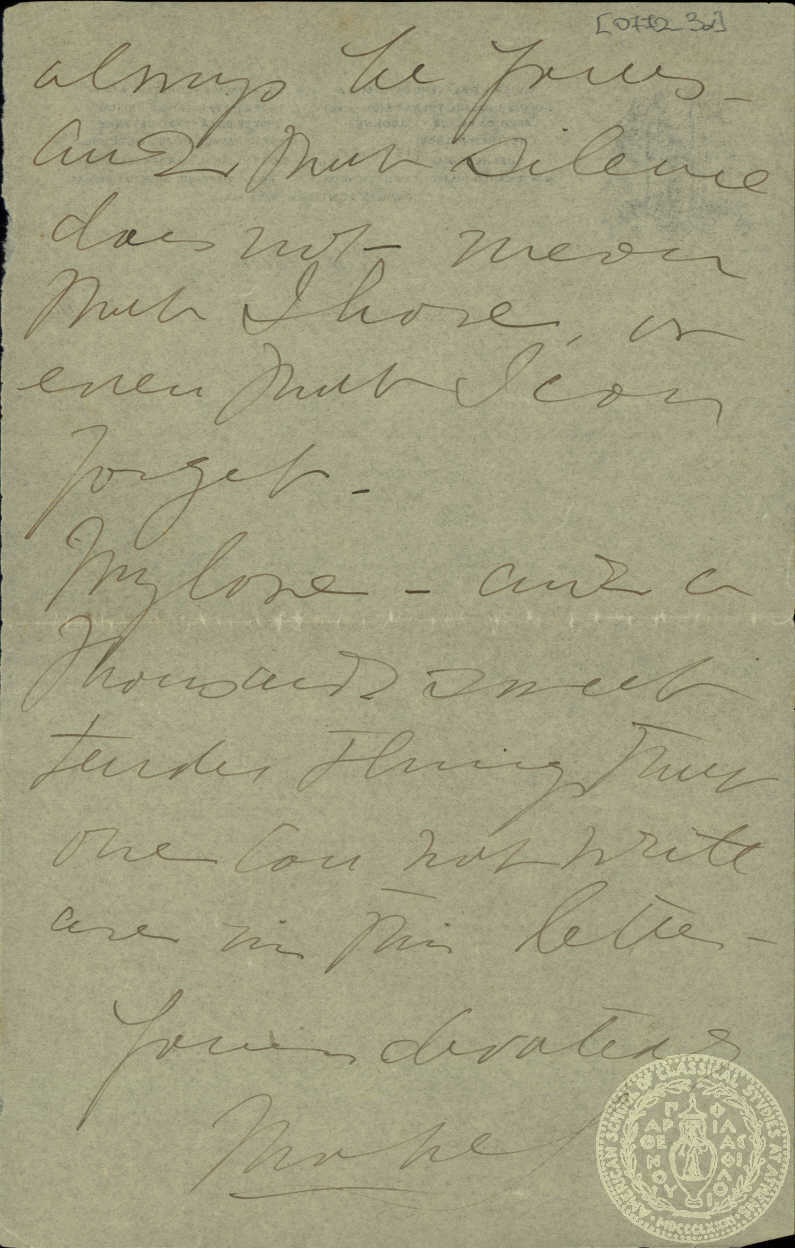 [0772 32]
always be yours –
And that silence
does not – mean
that I have, or
even that I can
forget –
My love – and a
thousand sweet
tender things that
one can not write
are in this letter –
Yours devotedly
Mabel
AMERICAN SCHOOL OF CLASSICAL STUDIES AT ATHENS
MDCCCLXXXI